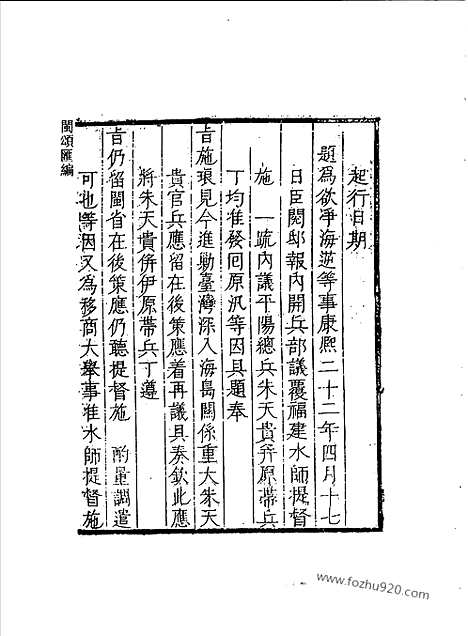 起行日期
題為欲凈海逆等事康熙二十二年四月十七
日臣閱邸報內開兵部議覆福建水師提督
施　一疏內議平陽總兵朱天貴并原帶兵
丁均准發回原汛等因具題奉
旨施琅見今進勦臺灣深入海島關係重大朱天
貴官兵應留在後策應着再議具奏欽此應
將朱天貴併伊原帶兵丁遵
旨仍留閩省在後策應仍聽提督施　酌量調遣
可也等因又為移商大舉事准水師提督施
閩頌匯編
www.fozhu920.com